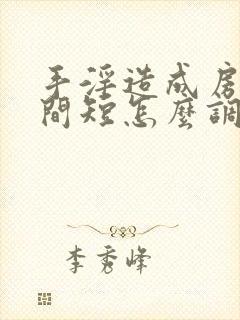 手淫造成房
間短怎麼調
李秀峰